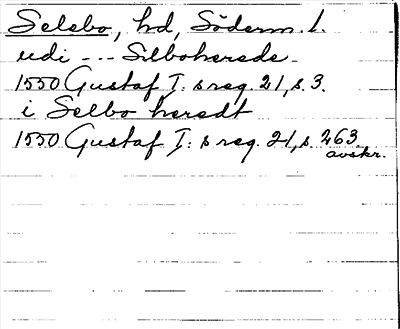 Selebo, hd, Söderm. l.
udi --- Silboherede.
1550 Gustaf I:s reg. 21, s. 3.
i Selbo heredt
1550 Gustaf I:s reg. 21, s. 263.
avskr.